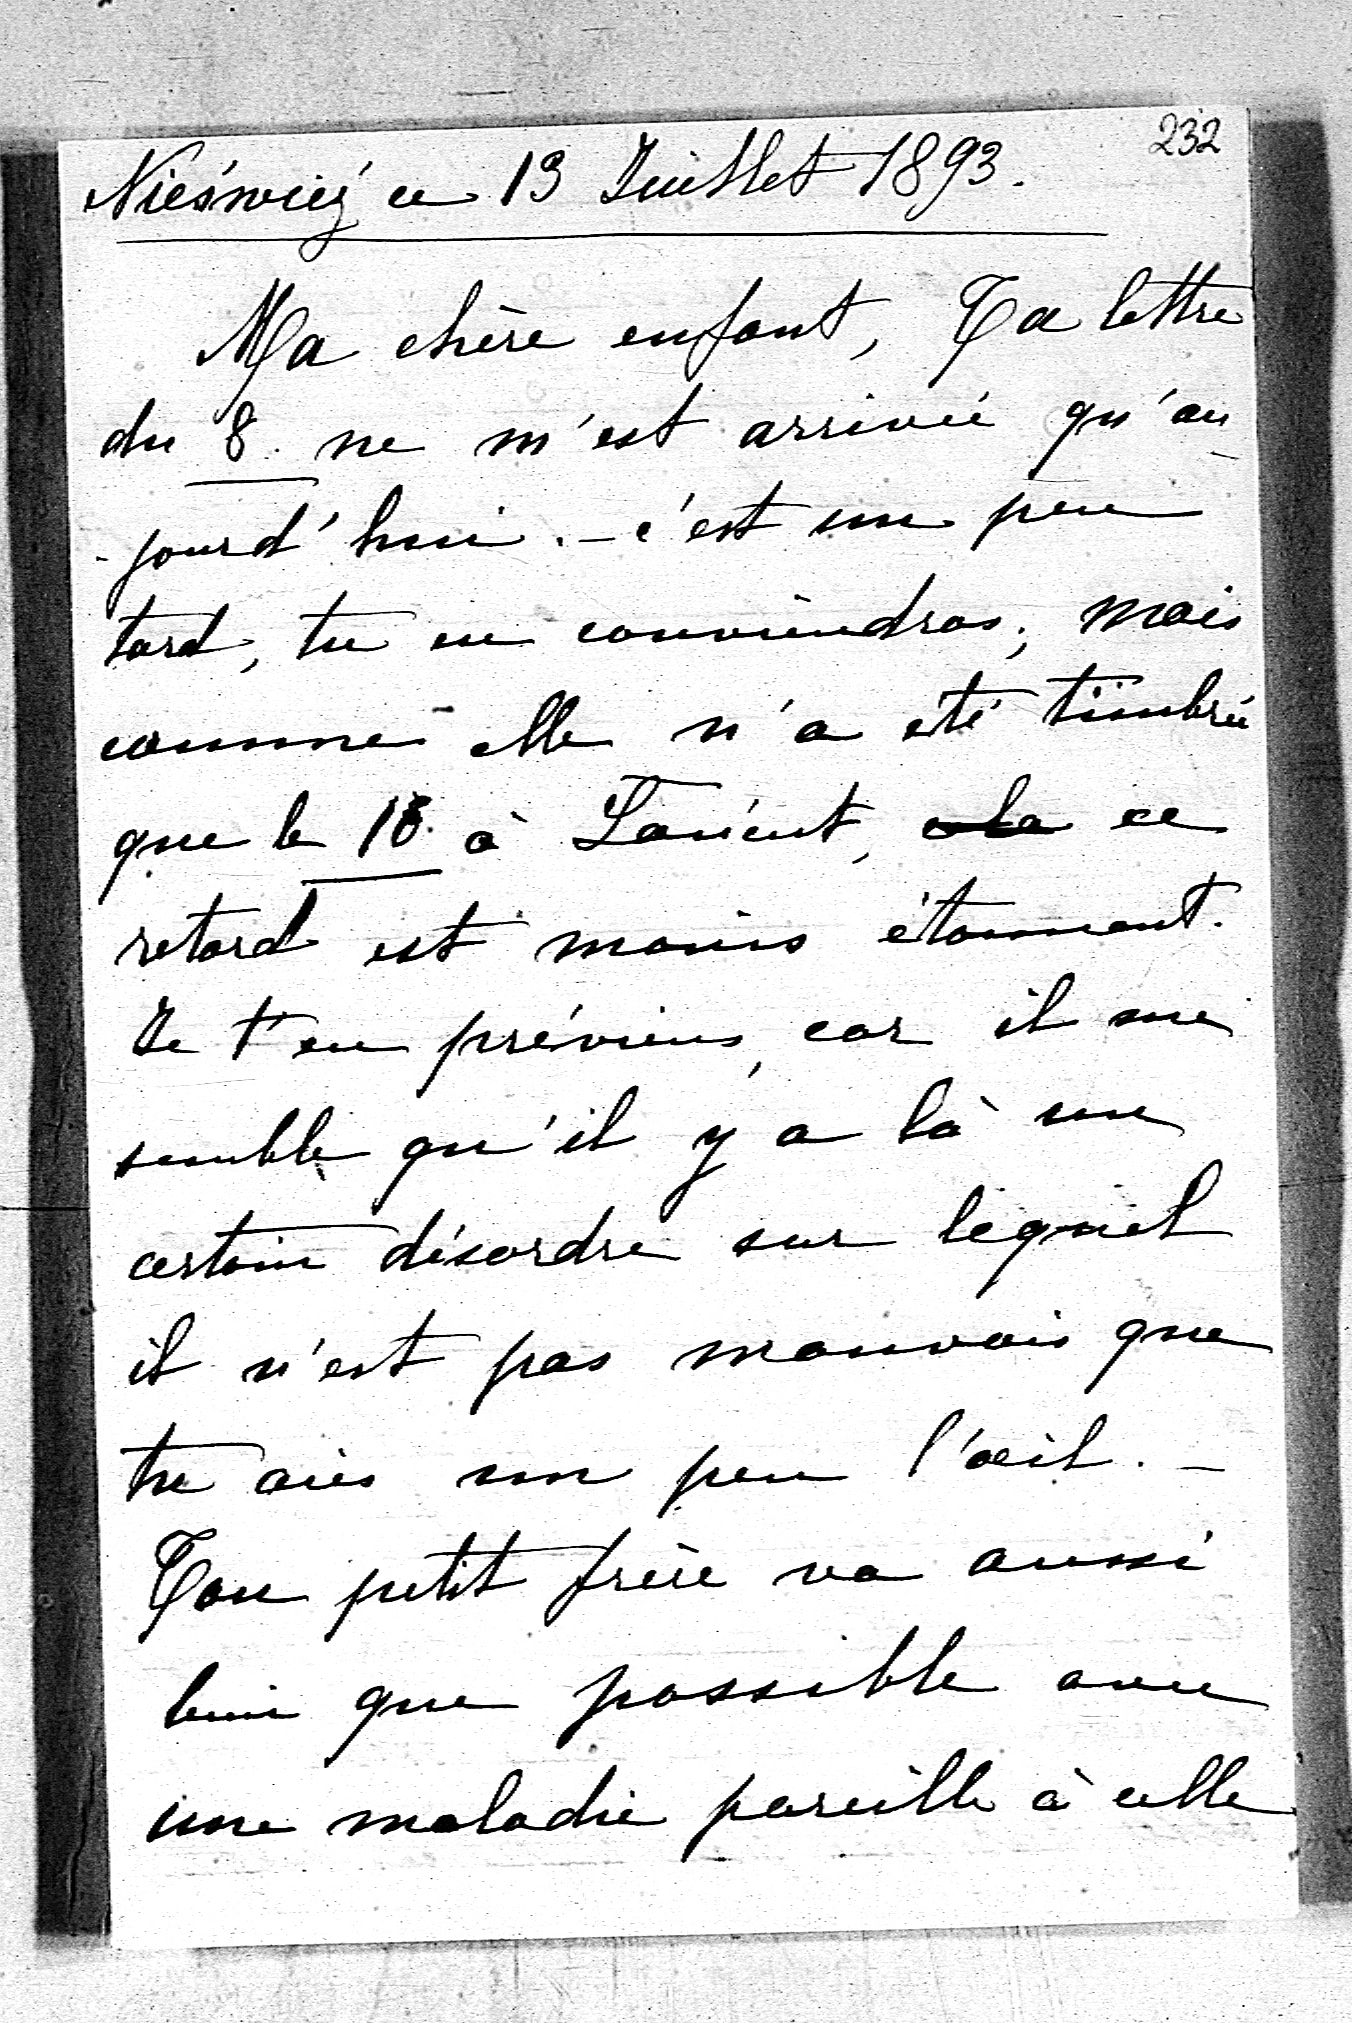 232
Nieśwież ce 13 Juillet 1893.
Ma chère enfant, Ta lettre
du 8. ne m'est arrivée qu'au-
-jourd'hui. - c'est un peu
tard, tu en conviendras; mais
comme elle n'a été timbrée
que le 10. à Łańcut, cela ce
retard est moins étonnant.
Je t'en préviens, car il me
semble qu'il y a là un
certain désordre sur lequel
il n'est pas mauvais que
tu aies un peu l'œil. -
Ton petit frère va aussi
bien que possible avec
une maladie pareille à celle